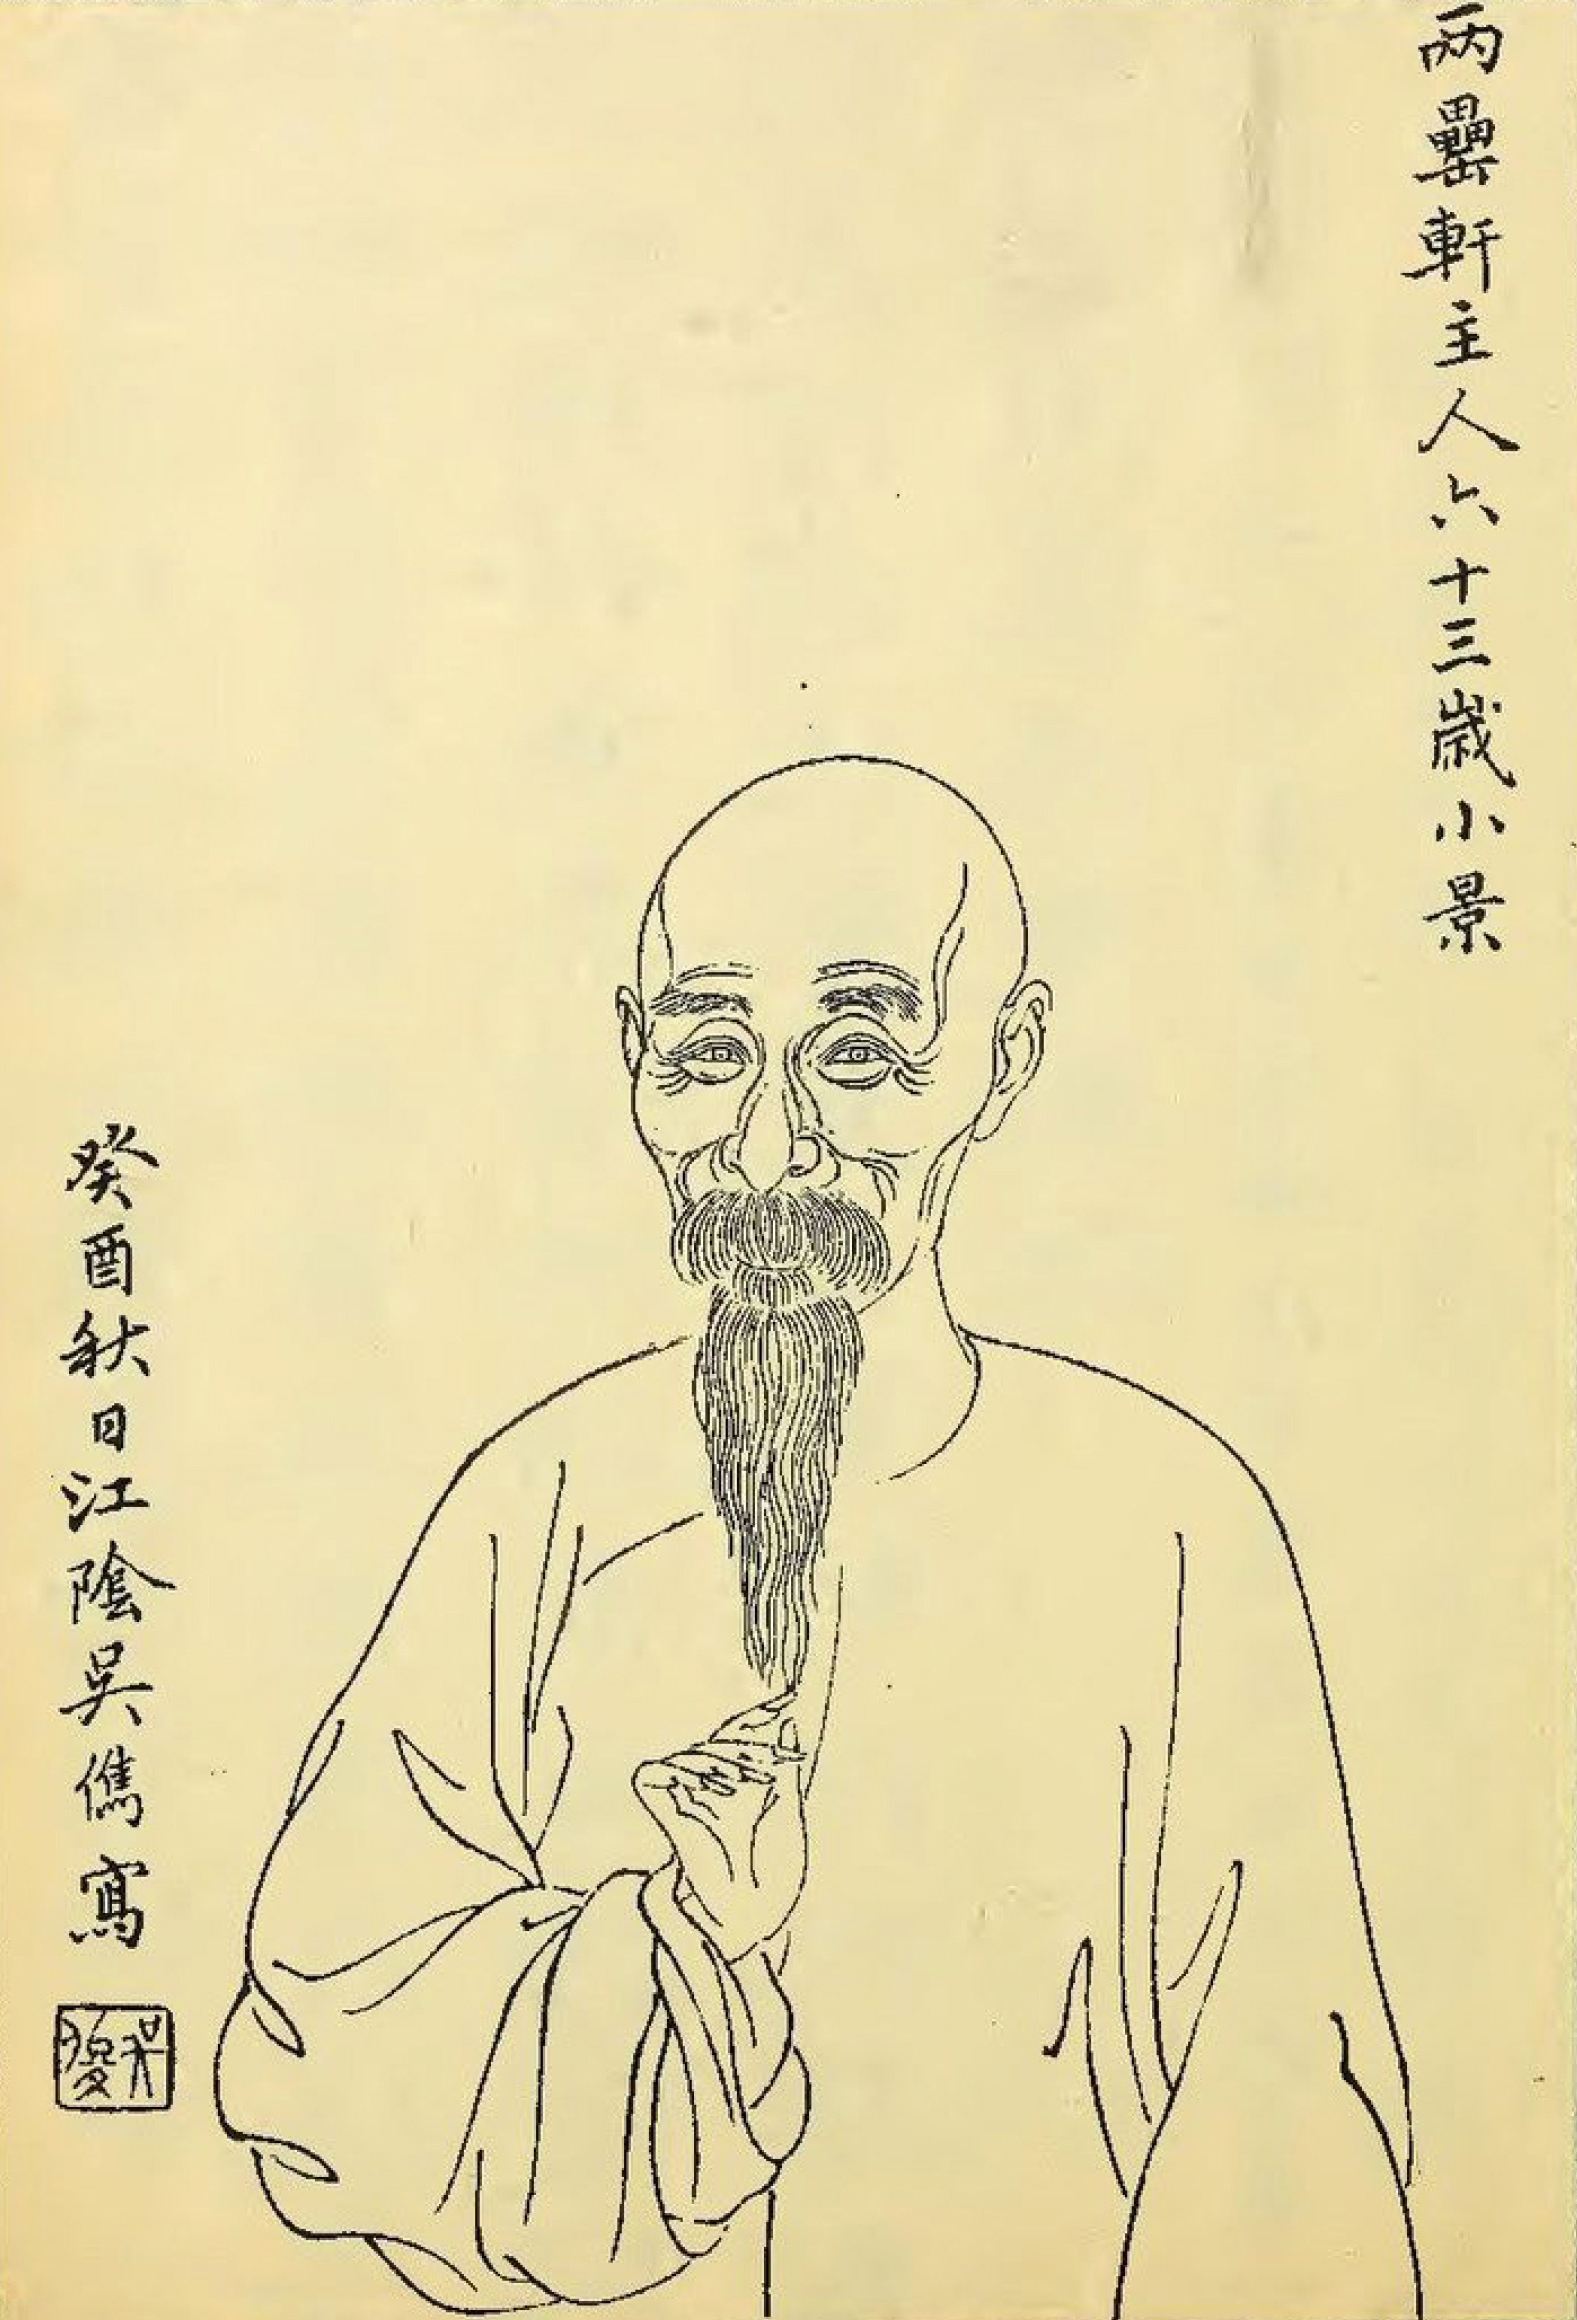 兩罍軒主人六十三歲小景
癸酉秋日江陰吳儁寫
吳儁